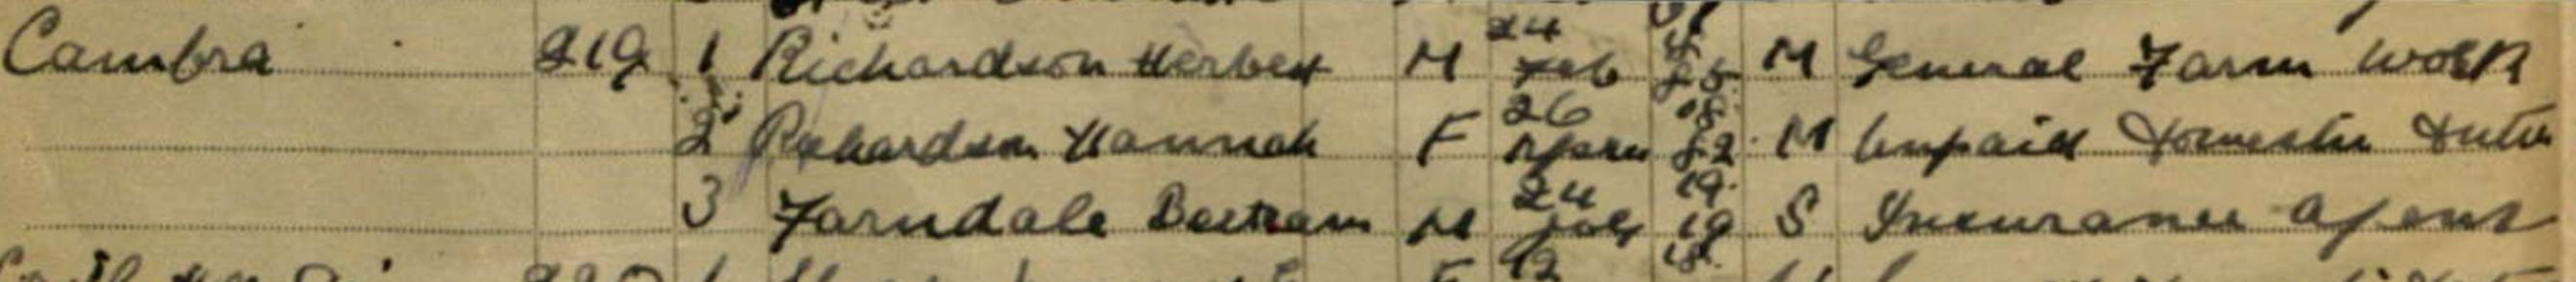 Cambra 219 1 Richardson Herbert M 24 Feb 85 M General Farm Work
2 Richardson Hannah F 26 April 82 M Unpaid Domestic Duties
3 Farndale Bertram M 24 July 19 S Insurance Agent